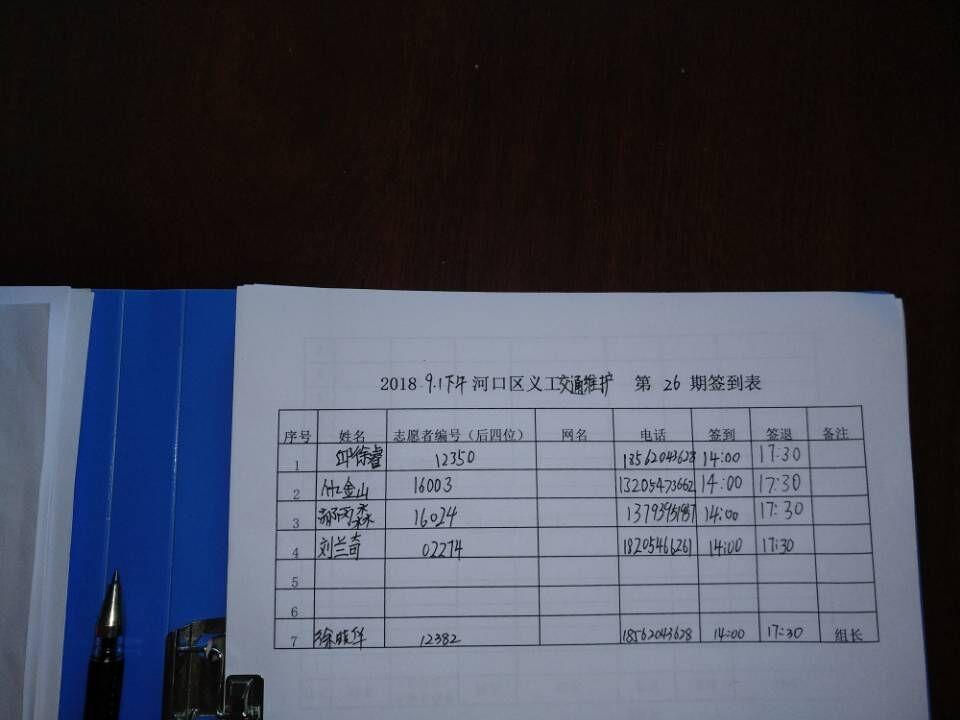 2018 9.1下午 河口区义工交通维护 第 26 期签到表
序号 姓名 志愿者编号（后四位） 网名 电话 签到 签退 备注
1 邱徐睿 12350 18562043628 14:00 17:30
2 金山 16003 13205473662 14:00 17:30
3 森 16024 14:00 17:30
4 刘兰奇 02274 18205466261 14:00 17:30
5
6
7 徐晓华 12382 18562043628 14:00 17:30 组长